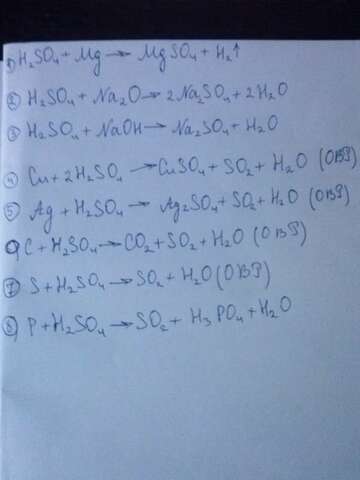 1) H₂SO₄ + Mg → MgSO₄ + H₂↑
2) H₂SO₄ + Na₂O → 2Na₂SO₄ + 2H₂O
3) H₂SO₄ + NaOH → Na₂SO₄ + H₂O
4) Cu + 2H₂SO₄ → CuSO₄ + SO₂ + H₂O (ОВР)
5) Ag + H₂SO₄ → Ag₂SO₄ + SO₂ + H₂O (ОВР)
6) C + H₂SO₄ → CO₂ + SO₂ + H₂O (ОВР)
7) S + H₂SO₄ → SO₂ + H₂O (ОВР)
8) P + H₂SO₄ → SO₂ + H₃PO₄ + H₂O